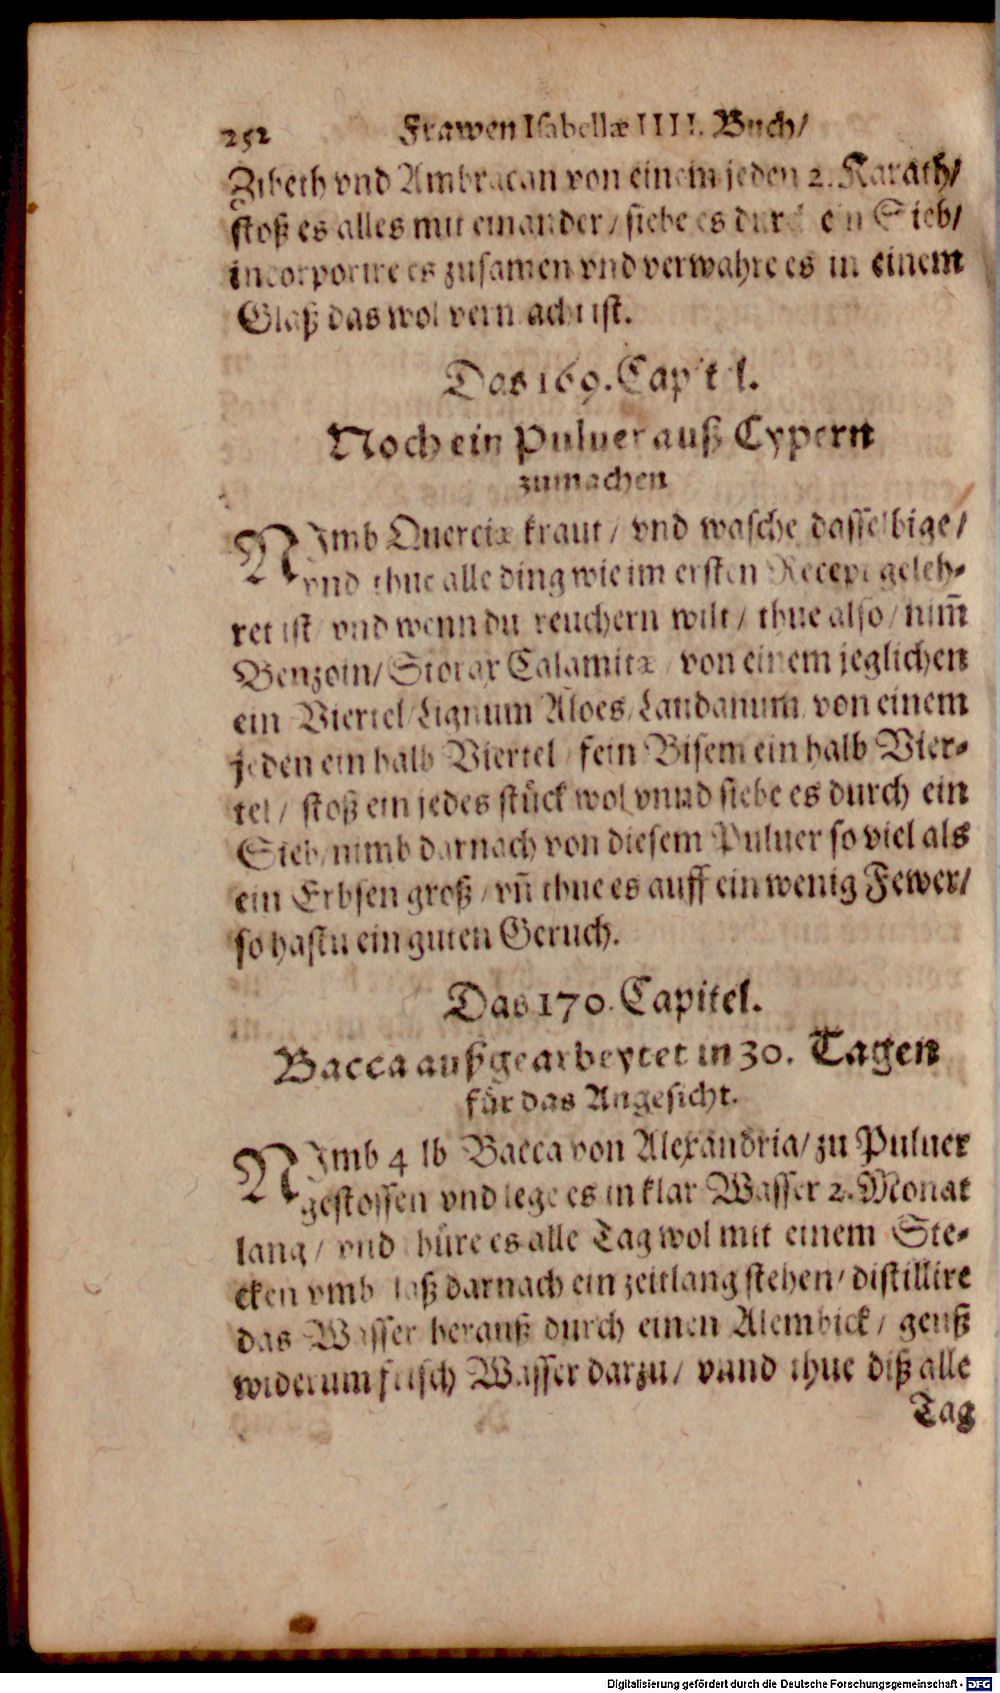 252 Frawen Isabellæ IIII. Buch/
Zibeth vnd Ambracan von einem jeden 2. Karath/
stoß es alles mit einander / siebe es durch ein Sieb/
incorporire es zusamen vnd verwahre es in einem
Glaß das wol vermacht ist.
Das 169. Capitel.
Noch ein Puluer auß Cypern
zumachen
NJmb Querciæ kraut / vnd wasche dasselbige /
vnd thue alle ding wie im ersten Recept geleh-
ret ist / vnd wenn du reuchern wilt / thue also / nim̃
Benzoin/ Storax Calamitæ / von einem jeglichen
ein Viertel / Lignum Aloes / Laudanum / von einem
jeden ein halb Viertel / fein Bisem ein halb Vier-
tel / stoß ein jedes stück wol vnnd siebe es durch ein
Sieb / nimb darnach von diesem Puluer so viel als
ein Erbsen groß / vñ thue es auff ein wenig Fewer/
so hastu ein guten Geruch.
Das 170. Capitel.
Bacca außgearbeytet in 30. Tagen
für das Angesicht.
NJmb 4 lb Bacca von Alexandria / zu Puluer
gestossen vnd lege es in klar Wasser 2. Monat
lang / vnd rhüre es alle Tag wol mit einem Ste-
cken vmb / laß darnach ein zeitlang stehen / distillire
das Wasser herauß durch einen Alembick / geuß
widerum frisch Wasser darzu / vnnd thue diß alle
Tag
Digitalisierung gefördert durch die Deutsche Forschungsgemeinschaft - DFG